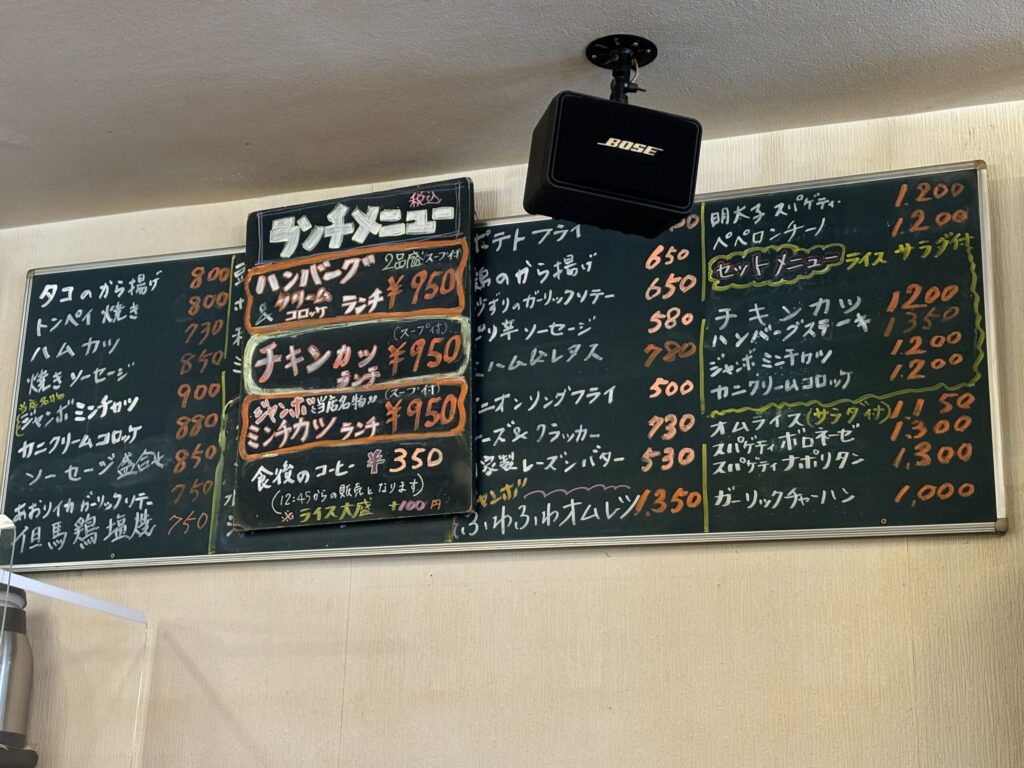 BOSE
タコのから揚げ 800
トンペイ焼き 800
ハムカツ 730
焼きソーセージ 850
当店名物
ジャンボミンチカツ 900
カニクリームコロッケ 880
ソーセージ盛合せ 850
あおりイカガーリックソテー 750
但馬鶏塩焼 750
税込
ランチメニュー
ハンバーグ 2品盛 スープ付
& クリームコロッケ ランチ ¥950
(スープ付)
チキンカツ ¥950
ランチ
ジャンボ "当店名物" (スープ付)
ミンチカツ ランチ ¥950
食後のコーヒー ¥350
(12:45からの販売となります)
※ライス大盛 +100円
ポテトフライ
鶏のから揚げ 650
ずりのガーリックソテー 650
ピリ辛ソーセージ 580
ハム&レタス 780
ニオンリングフライ 500
ーズ&クラッカー 730
家製レーズンバター 530
ジャンボ
ふわふわオムレツ 1.350
明太子スパゲティ 1.200
ペペロンチーノ 1.200
セットメニュー ライス サラダ付
チキンカツ 1200
ハンバーグステーキ 1350
ジャンボミンチカツ 1.200
カニクリームコロッケ 1.200
オムライス(サラダ付) 1.150
スパゲティボロネーゼ 1.300
スパゲティナポリタン 1.300
ガーリックチャーハン 1,000